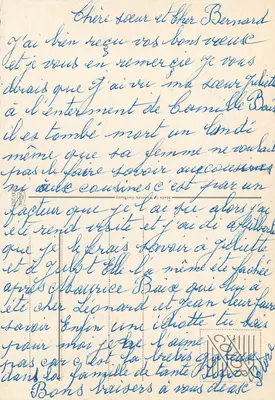 Chère sœur et cher Bernard
J'ai bien reçu vos bons vœux
et je vous en remercie je vous
dirais que j'ai vu ma sœur Juliette
à l'enterment de Camille
il es tombé mort un lundi
même que sa femme ne voulait
pas le faire savoir aux cousins
ni aux cousines c'est par un
facteur que je l'ai su alors j'ai
été rend visite et j'au di
que je le frais savoir à Juliette
et à Julot Elle l'a même été fachée
après Maurice Baux qui
été cher Léonard et Jean leur faire
savoir Enfin une idiotte tu sais
pour moi je ne l'aime
pas car c'est la brebis
dans la famille de tante
Bons baisers à vous deux